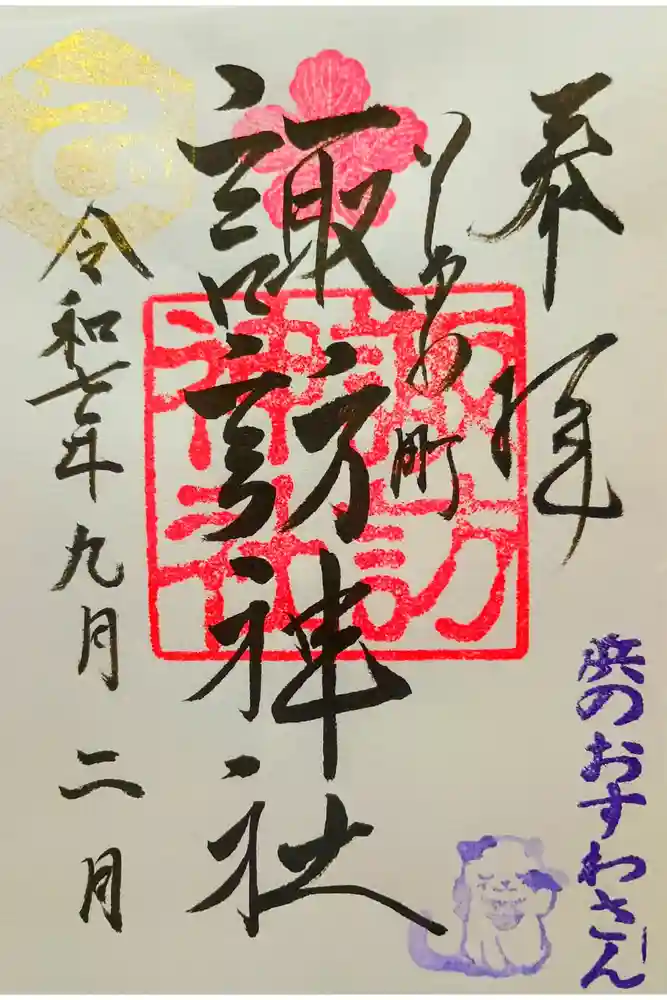 奉拝
町
諏訪神社
諏訪
神社
令和七年九月二月
浜のおすわさん